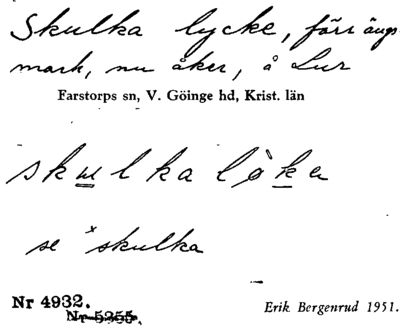 Skulka lycke, förr ängs-
mark, nu åker, å Lur
Farstorps sn, V. Göinge hd, Krist. län
skulka lò̀ka
se ˣskulka
Nr 4932.
Nr 5255.
Erik Bergenrud 1951.